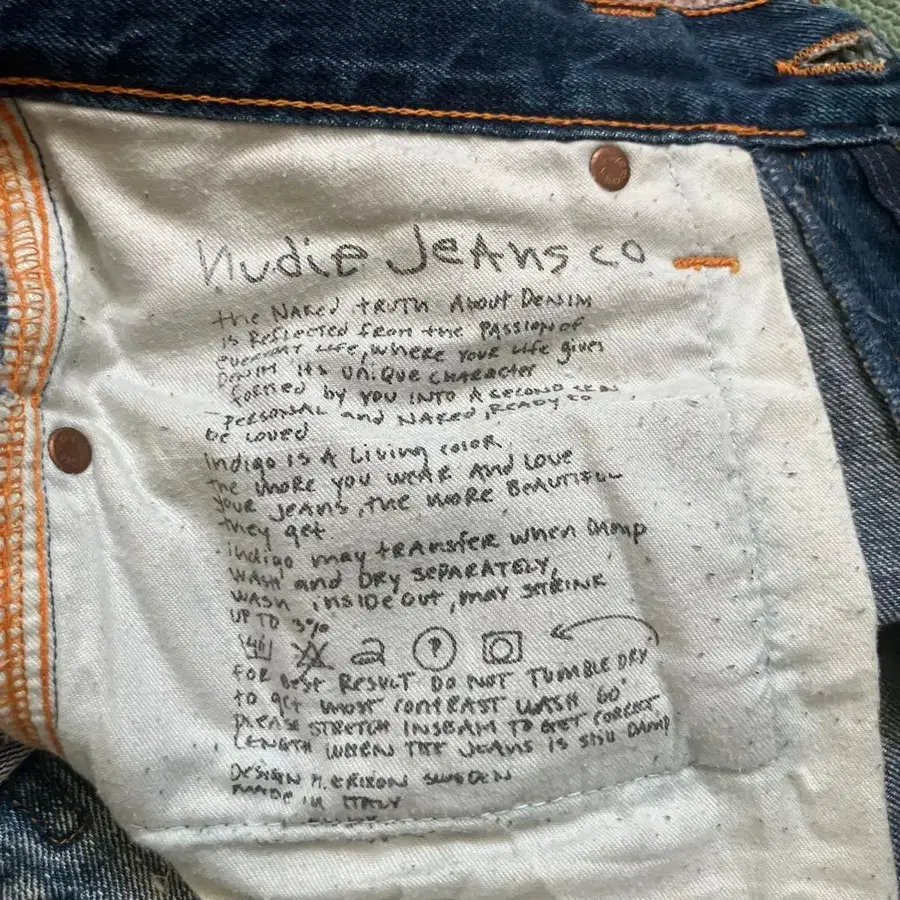 Nudie Jeans co
the Naked truth About Denim
is Reflected from the passion of
everyday life, where your life gives
Denim its unique character
formed by you into a second skin
- personal and naked, ready to
be loved
Indigo is A Living color,
The more you wear and love
your jeans, the more beautiful
they get
indigo may transfer when damp
wash and dry separately,
wash inside out, may shrink
up to 3%
For best result do not tumble dry
to get most contrast wash 60°
please stretch inseam to get correct
length when the jeans is still damp
Design M. Erixon Sweden
made in Italy